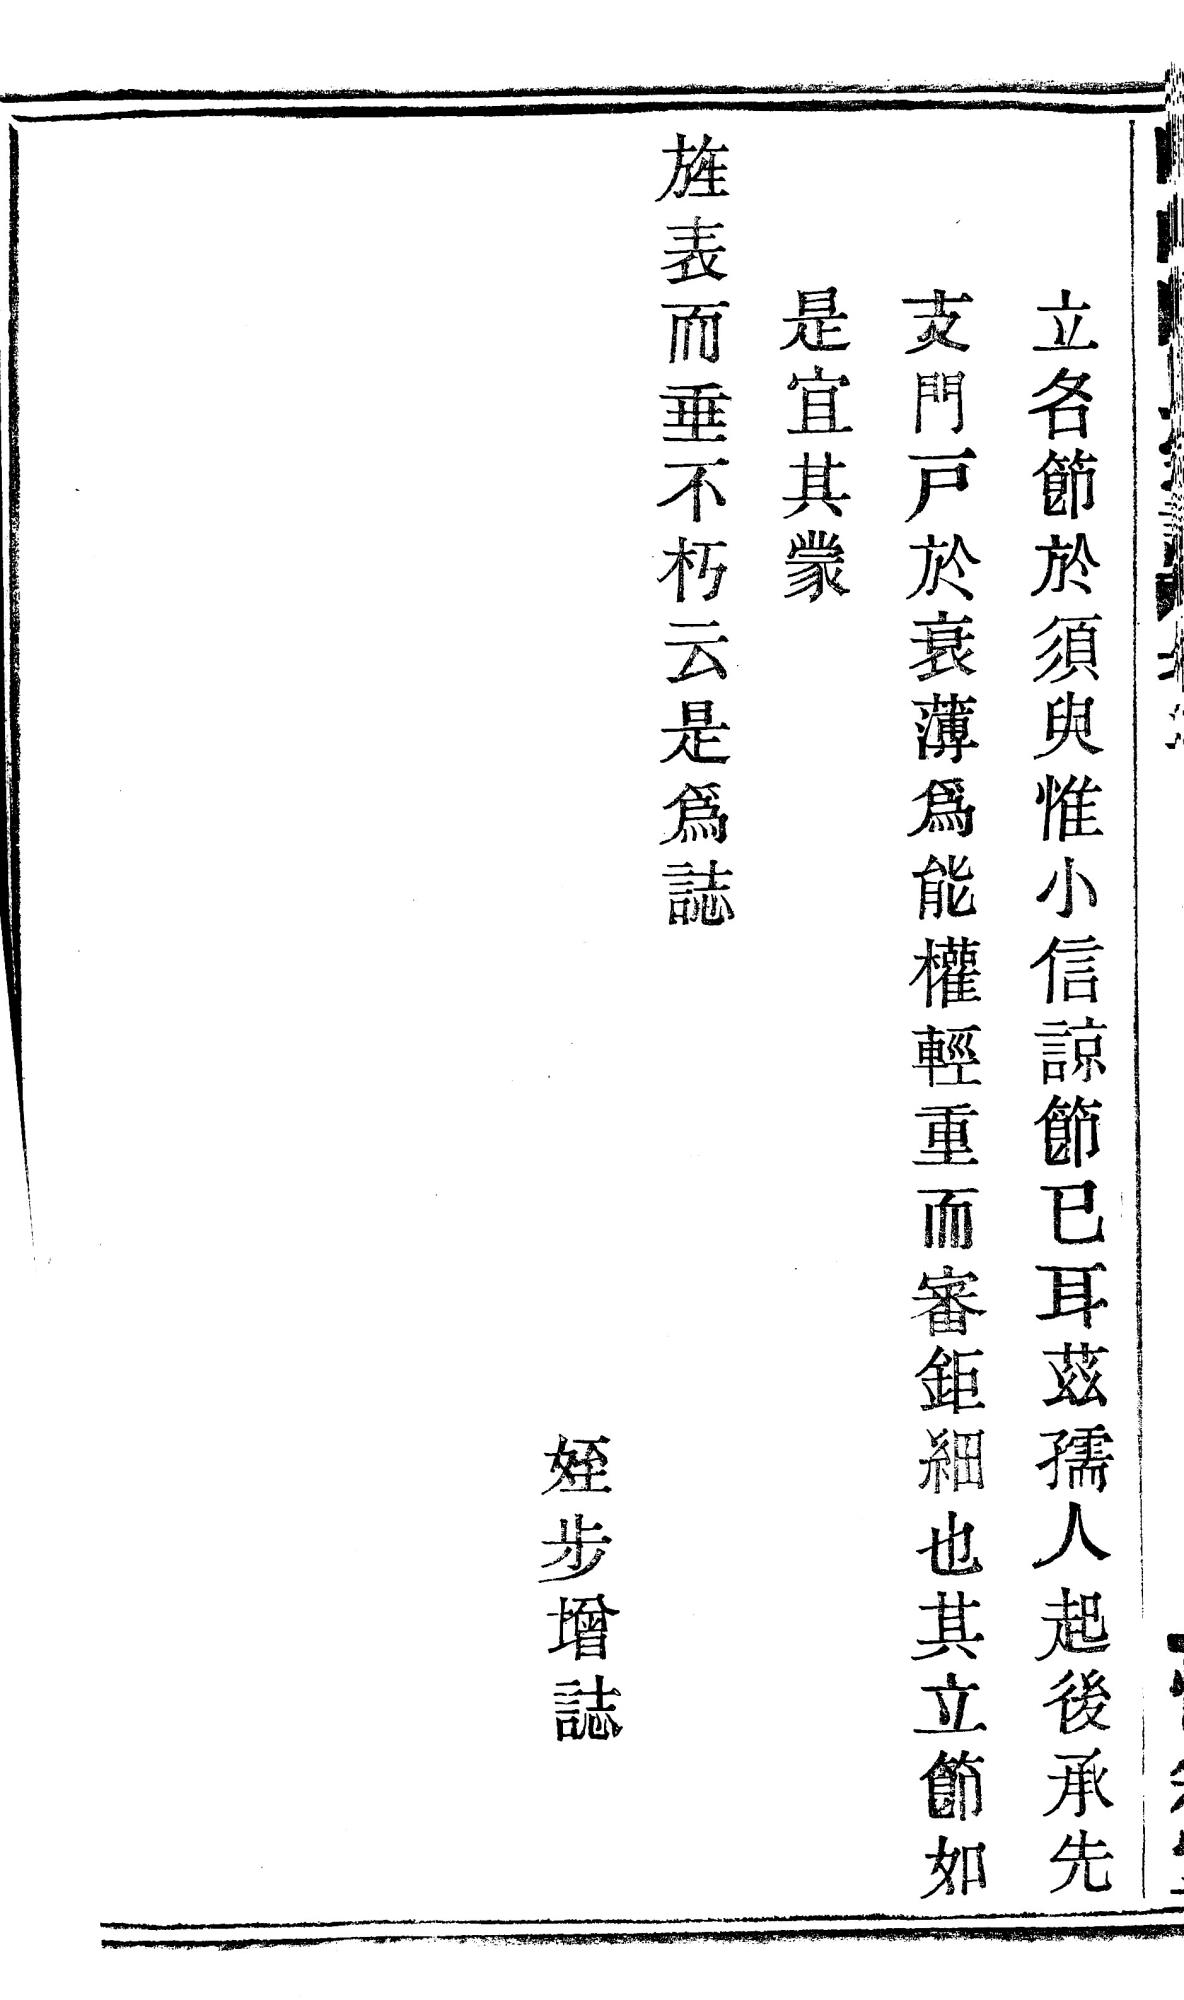 立各節於須臾惟小信諒節已耳茲孺人起後承先
支門戸於衰薄爲能權輕重而審鉅細也其立節如
是宜其蒙
旌表而垂不朽云是爲誌
姪步增誌